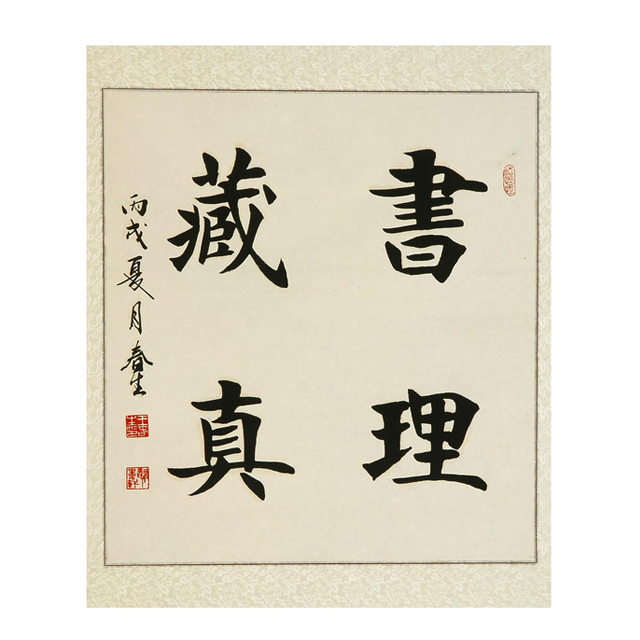 書理
藏真
丙戌夏月春生